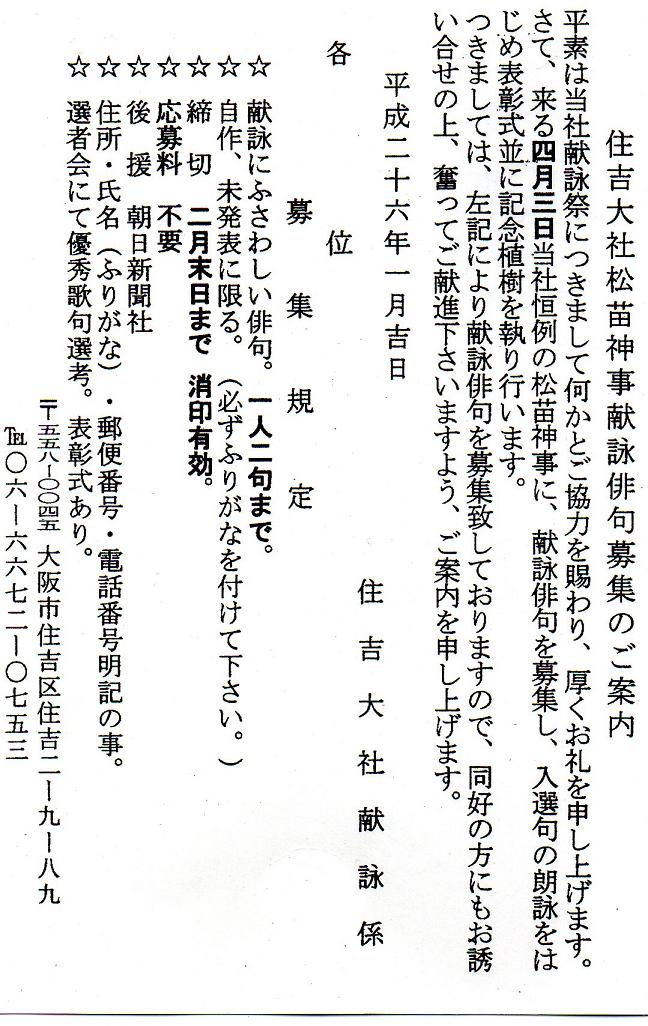 住吉大社松苗神事献詠俳句募集のご案内
平素は当社献詠祭につきまして何かとご協力を賜わり、厚くお礼を申し上げます。
さて、来る四月三日当社恒例の松苗神事に、献詠俳句を募集し、入選句の朗詠をは
じめ表彰式並に記念植樹を執り行います。
つきましては、左記により献詠俳句を募集致しておりますので、同好の方にもお誘
い合せの上、奮ってご献進下さいますよう、ご案内を申し上げます。
平成二十六年一月吉日
住吉大社献詠係
各位
募集規定
☆ 献詠にふさわしい俳句。一人二句まで。
☆ 自作、未発表に限る。（必ずふりがなを付けて下さい。）
☆ 締切 二月末日まで 消印有効。
☆ 応募料 不要
☆ 後援 朝日新聞社
☆ 住所・氏名（ふりがな）・郵便番号・電話番号明記の事。
☆ 選者会にて優秀歌句選考。表彰式あり。
〒五五八ー〇〇四五 大阪市住吉区住吉二ー九ー八九
℡〇六ー六六七二ー〇七五三